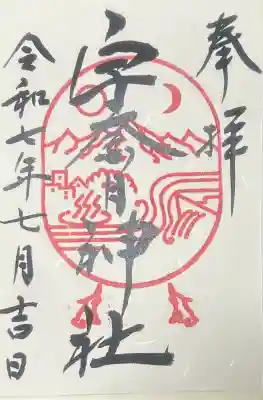 奉拝
宇奈月神社
令和七年七月吉日